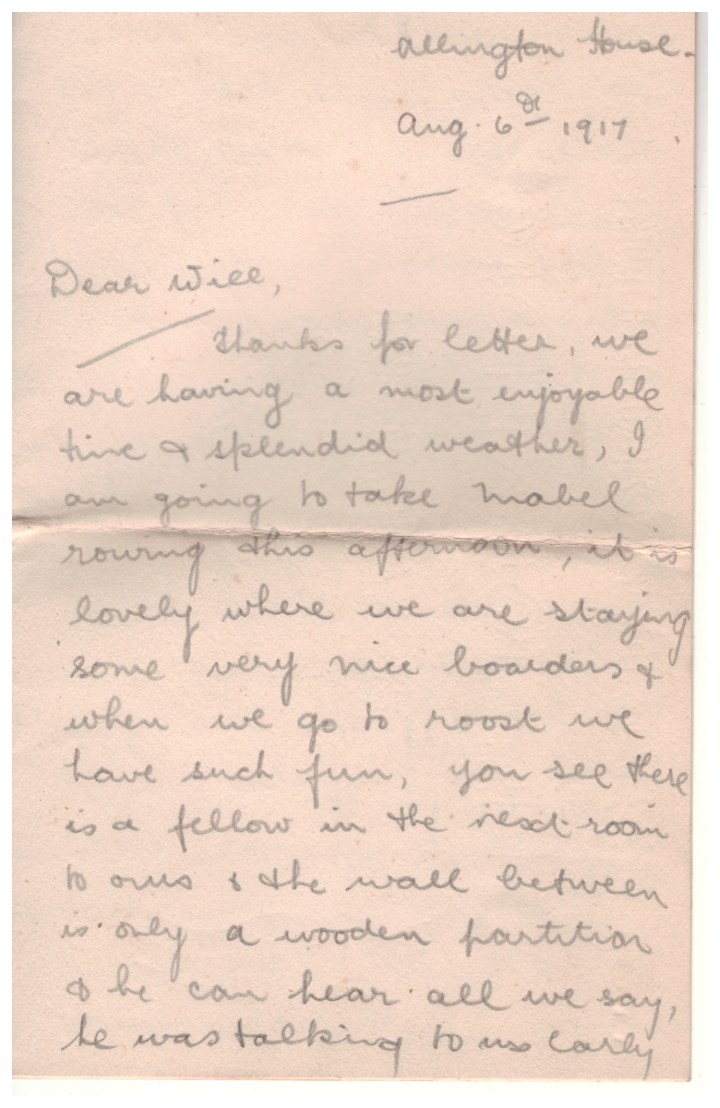 Allington House.
Aug. 6th 1917
Dear Will,
Thanks for letter, we
are having a most enjoyable
time & splendid weather, I
am going to take Mabel
rowing this afternoon, it is
lovely where we are staying
some very nice boarders &
when we go to roost we
have such fun, you see there
is a fellow in the next room
to ours & the wall between
is only a wooden partition
& he can hear all we say,
he was talking to us early